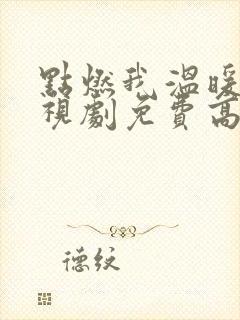 點燃我溫暖
視劇免費高
德紋